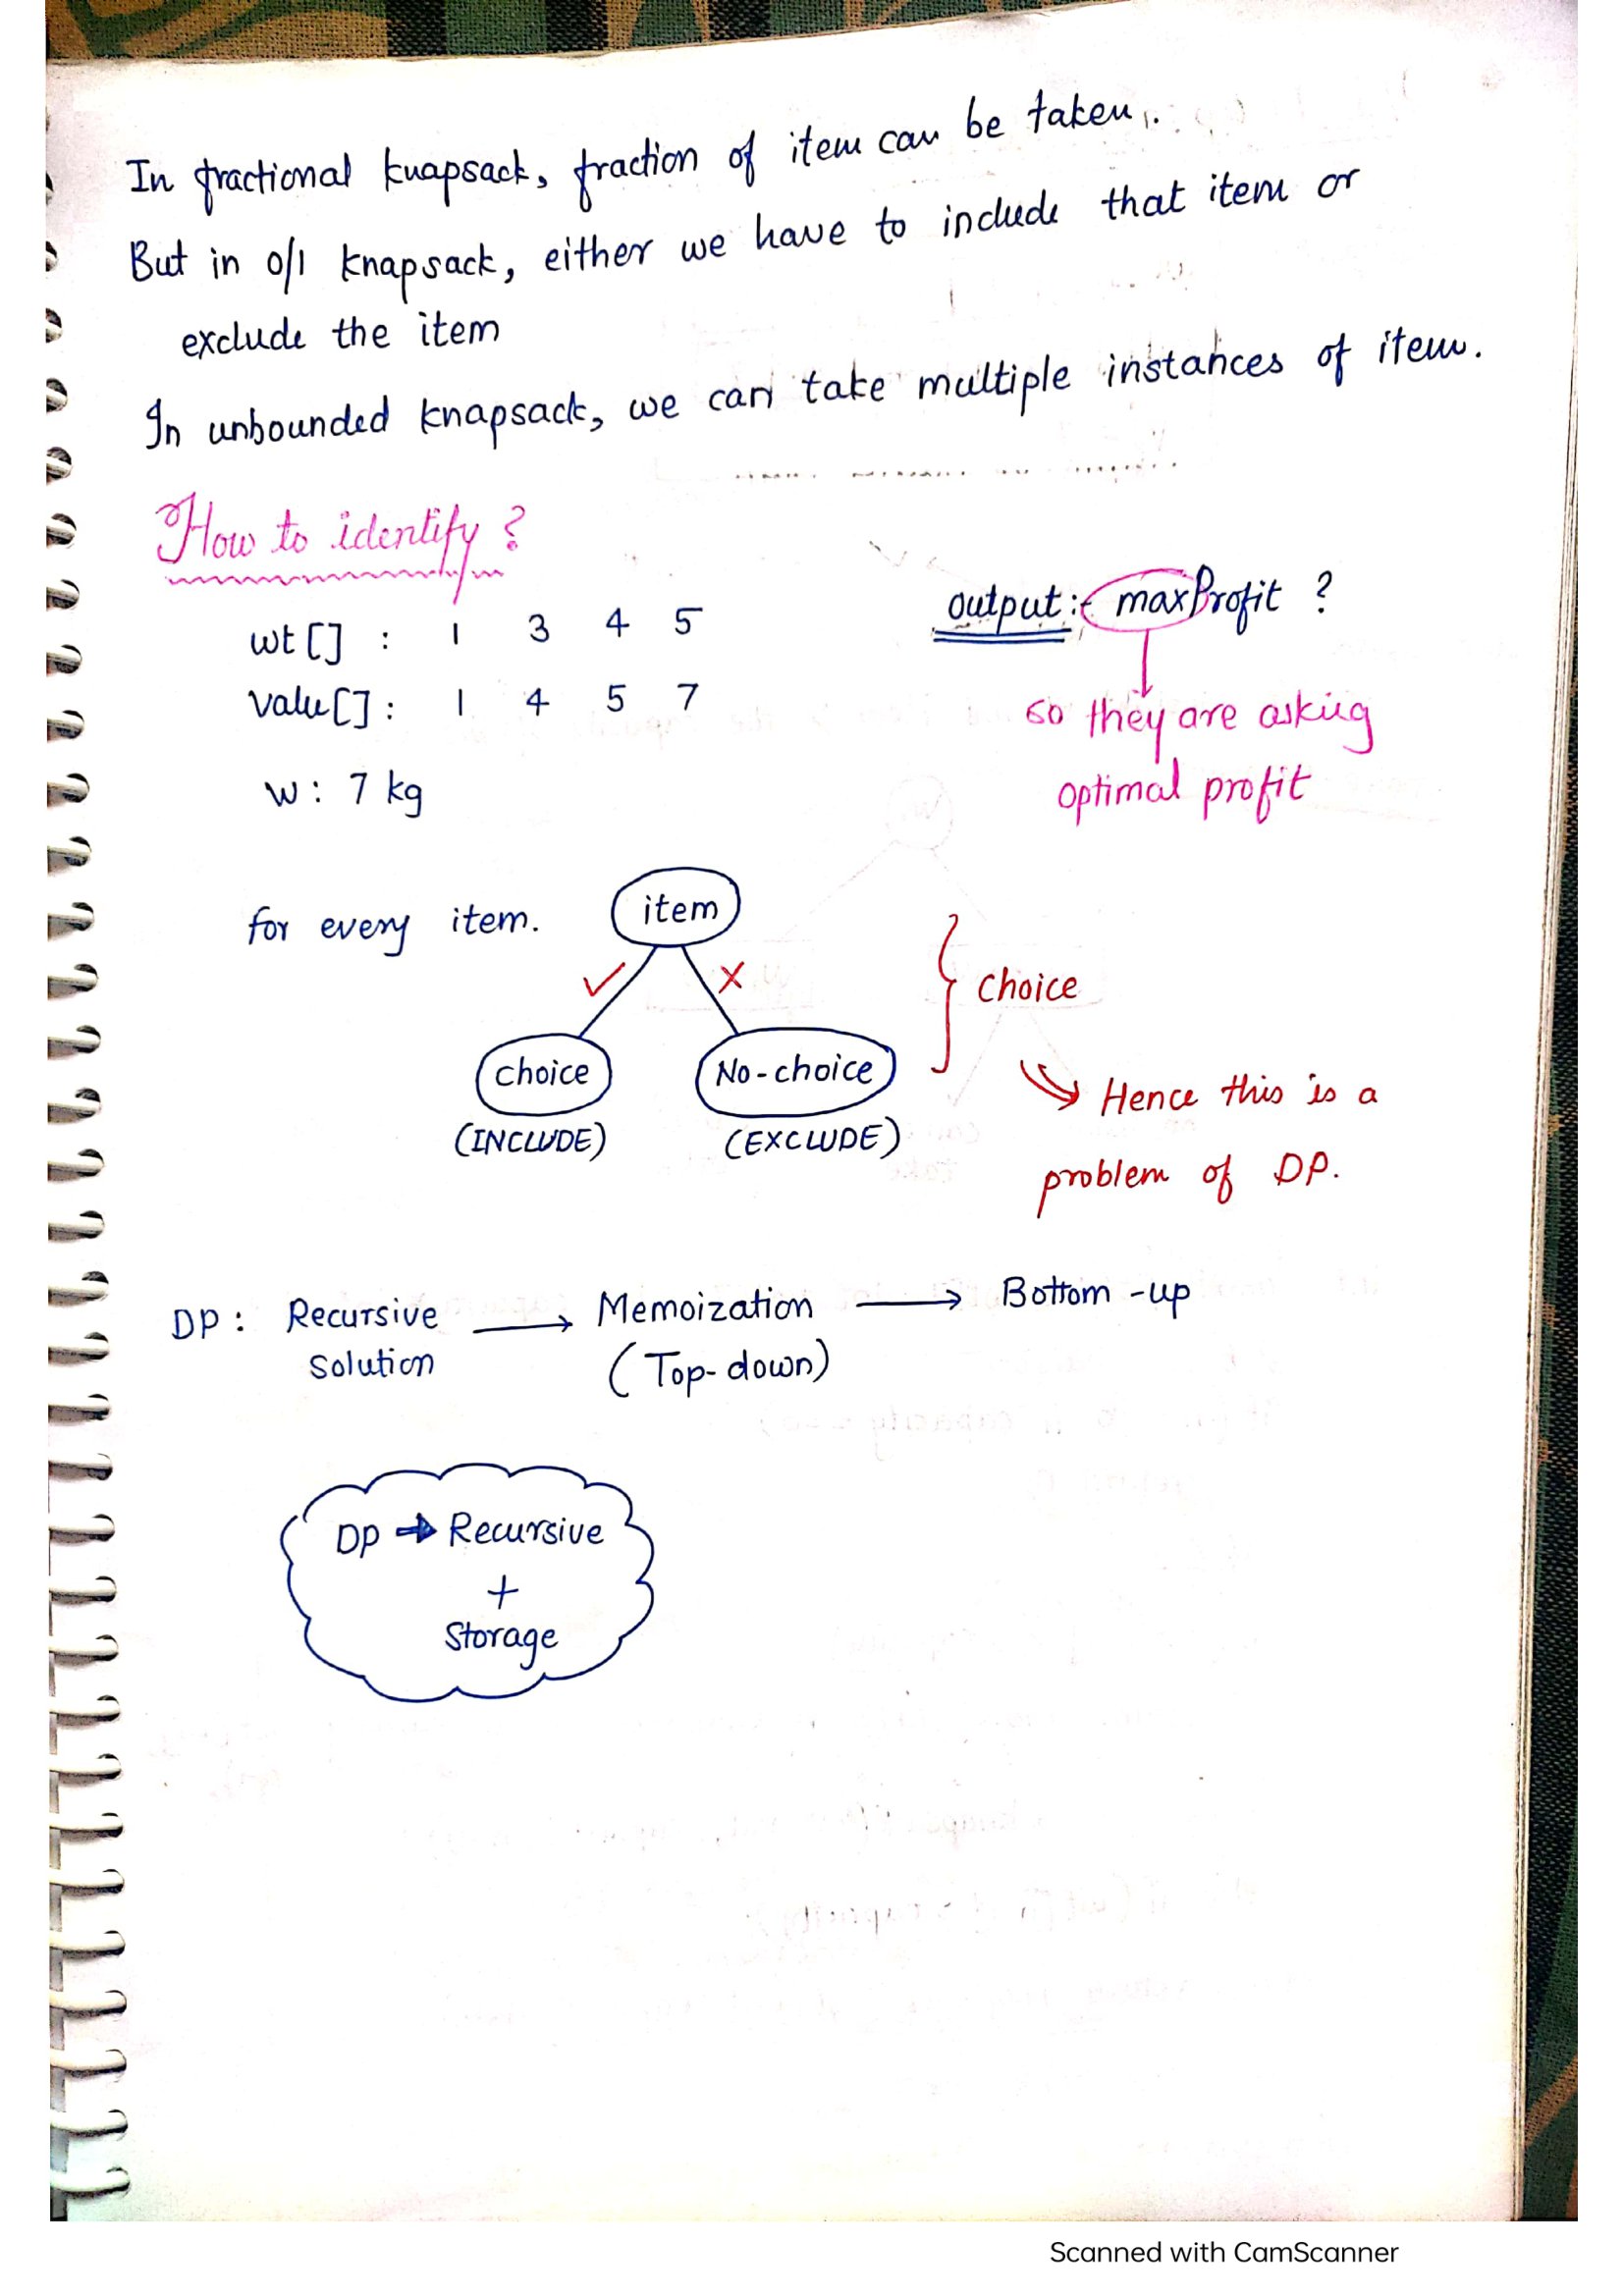 In fractional knapsack, fraction of item can be taken.
But in 0/1 knapsack, either we have to include that item or
exclude the item
In unbounded knapsack, we can take multiple instances of item.
How to identify?
wt[] : 1 3 4 5
valu[] : 1 4 5 7
w : 7 kg
output :- maxProfit ?
so they are asking
optimal profit
for every item.
item
✓ X
choice
No-choice
(INCLUDE)
(EXCLUDE)
} choice
Hence this is a
problem of DP.
DP : Recursive → Memoization → Bottom-up
Solution (Top-down)
DP → Recursive
+
Storage
Scanned with CamScanner